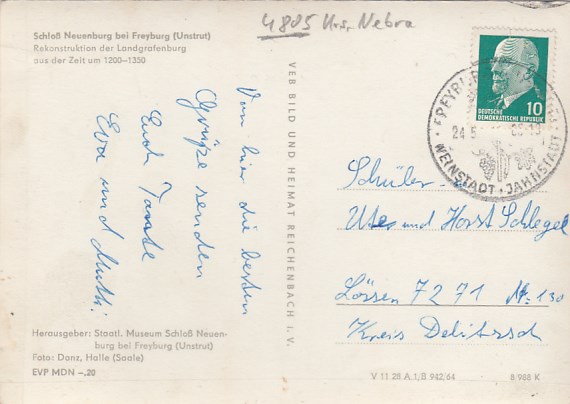 4805 Krs. Nebra
Schloß Neuenburg bei Freyburg (Unstrut)
Rekonstruktion der Landgrafenburg
aus der Zeit um 1200–1350
Von hier die besten
Grüße senden
Euch Tante
Eva und Mutti
Herausgeber: Staatl. Museum Schloß Neuen-
burg bei Freyburg (Unstrut)
Foto: Danz, Halle (Saale)
EVP MDN –,20
VEB BILD UND HEIMAT REICHENBACH I. V.
10
DEUTSCHE
DEMOKRATISCHE REPUBLIK
24.5
WEINSTADT · JAHNSTADT
Schüler
Ute und Horst Schlegel
Lössen 7271 Nr. 130
Kreis Delitzsch
V 11 28 A 1/B 942/64
8 988 K